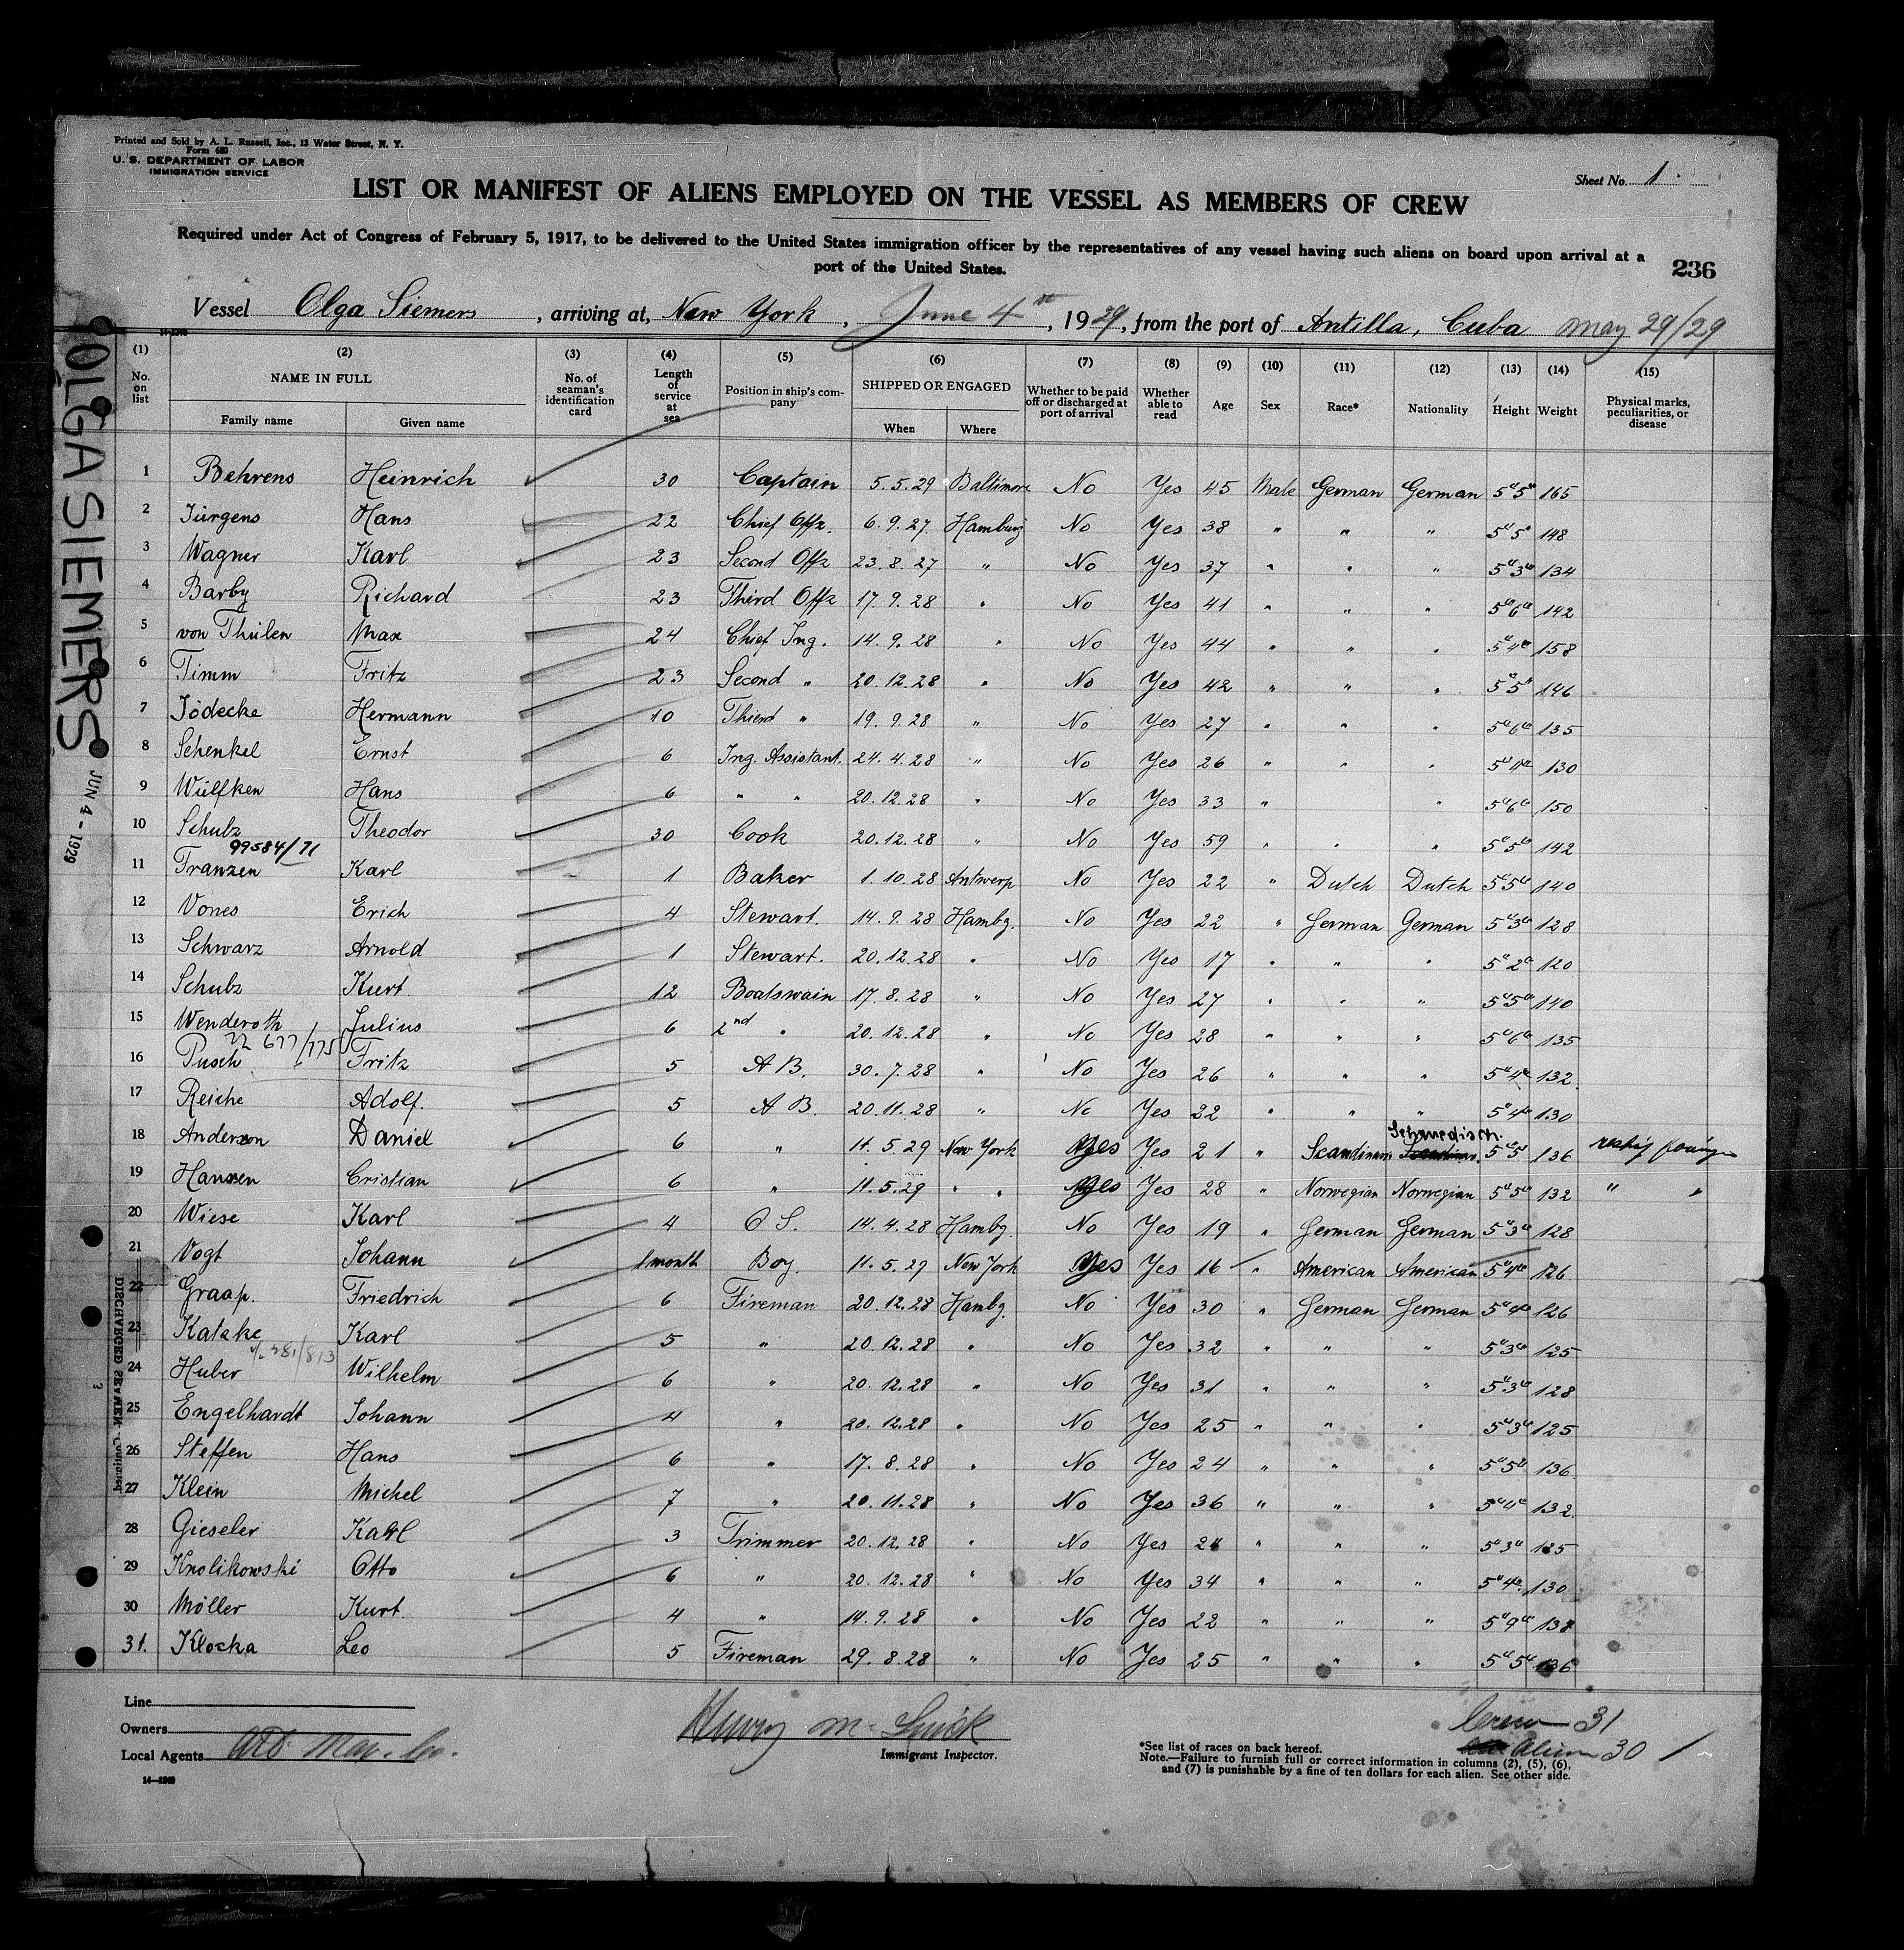 Printed and Sold by A. L. Russell, Inc., 13 Water Street, N. Y.
Form 680
U. S. DEPARTMENT OF LABOR
IMMIGRATION SERVICE
Sheet No. 1.
LIST OR MANIFEST OF ALIENS EMPLOYED ON THE VESSEL AS MEMBERS OF CREW
Required under Act of Congress of February 5, 1917, to be delivered to the United States immigration officer by the representatives of any vessel having such aliens on board upon arrival at a
port of the United States.
236
Vessel Olga Siemers, arriving at, New York, June 4th, 1929, from the port of Antilla, Cuba May 29/29
OLGA SIEMERS
JUN 4 - 1929
(1) (2) (3) (4) (5) (6) (7) (8) (9) (10) (11) (12) (13) (14) (15)
No. on list NAME IN FULL Family name Given name No. of seaman's identification card Length of service at sea Position in ship's company SHIPPED OR ENGAGED When Where Whether to be paid off or discharged at port of arrival Whether able to read Age Sex Race* Nationality Height Weight Physical marks, peculiarities, or disease
1 Behrens Heinrich 30 Captain 5.5.29 Baltimore No Yes 45 Male German German 5"5" 165
2 Jürgens Hans 22 Chief Offz. 6.9.27. Hamburg No Yes 38 " " " 5"5" 148
3 Wagner Karl 23 Second Offz 23.8.27 " No Yes 37 " " " 5"3" 134
4 Barby Richard 23 Third Offz 17.9.28 " No Yes 41 " " " 5"6" 142
5 von Thülen Max 24 Chief Ing. 14.9.28 " No Yes 44 " " " 5"4" 158
6 Timm Fritz 23 Second " 20.12.28 " No Yes 42 " " " 5"5" 146
7 Jödecke Hermann 10 Thierd " 19.9.28 " No Yes 27 " " " 5"6" 135
8 Schenkel Ernst 6 Ing. Assistant. 24.4.28 " No Yes 26 " " " 5"4" 130
9 Wülfken Hans 6 " " 20.12.28 " No Yes 33 " " 5"6" 150
10 Schulz Theodor 30 Cook 20.12.28 " No Yes 59 " " " 5"5" 142
99584/71
11 Franzen Karl 1 Baker 1.10.28 Antwerp No Yes 22 " Dutch Dutch 5"5" 140
12 Vones Erich 4 Stewart. 14.9.28 Hambg. No Yes 22 " German German 5"3" 128
13 Schwarz Arnold 1 Stewart. 20.12.28 " No Yes 17 " " " 5"2" 120
14 Schulz Kurt. 12 Boatswain 17.8.28 " No Yes 27 " " " 5"5" 140
15 Wenderoth Julius 6 2nd " 20.12.28 " No Yes 28 " " " 5"6" 135
677/775
16 Pusch Fritz 5 A B. 30.7.28 " No Yes 26 " " " 5"4" 132.
17 Reiche Adolf. 5 A B. 20.11.28 " No Yes 22 " " " 5"4" 130
Schwedisch.
18 Anderson Daniel 6 " 11.5.29 New York Yes Yes 21 " Scandinavi 5"5 136
19 Hansen Cristian 6 " 11.5.29 " " Yes Yes 28 " Norwegian Norwegian 5"5" 132 " "
20 Wiese Karl 4 O S. 14.4.28 Hambg. No Yes 19 " German German 5"3" 128
21 Vogt Johann 1 month Boy. 11.5.29 New York Yes Yes 16 " American American 5"4" 126
22 Graap. Friedrich 6 Fireman 20.12.28 Hambg. No Yes 30 " German German 5"4" 126
23 Katzke Karl 5 " 20.12.28 " No Yes 32 " " " 5"3" 125
24 Huber Wilhelm 6 " 20.12.28 " No Yes 31 " " " 5"3" 128
25 Engelhardt Johann 4 " 20.12.28 " No Yes 25 " " " 5"3" 125
26 Steffen Hans 6 " 17.8.28 " No Yes 24 " " " 5"5" 136
27 Klein Michel 7 " 20.11.28 " No Yes 36 " " " 5"4" 132.
28 Gieseler Karl 3 Trimmer 20.12.28 " No Yes 24 " " " 5"3" 125
29 Knolikowski Otto 6 " 20.12.28 " No Yes 34 " " " 5"4" 130
30 Möller Kurt 4 " 14.9.28 " No Yes 22 " " " 5"9" 138
31. Klocka Leo 5 Fireman 29.8.28 " No Yes 25 " " " 5"5" 136
DISCHARGED SEAMEN - Continued
3
Line
Owners
Local Agents
14—1240
Henry M.
Immigrant Inspector.
*See list of races on back hereof.
Note.—Failure to furnish full or correct information in columns (2), (5), (6),
and (7) is punishable by a fine of ten dollars for each alien. See other side.
Crew 31
Alien 30 1